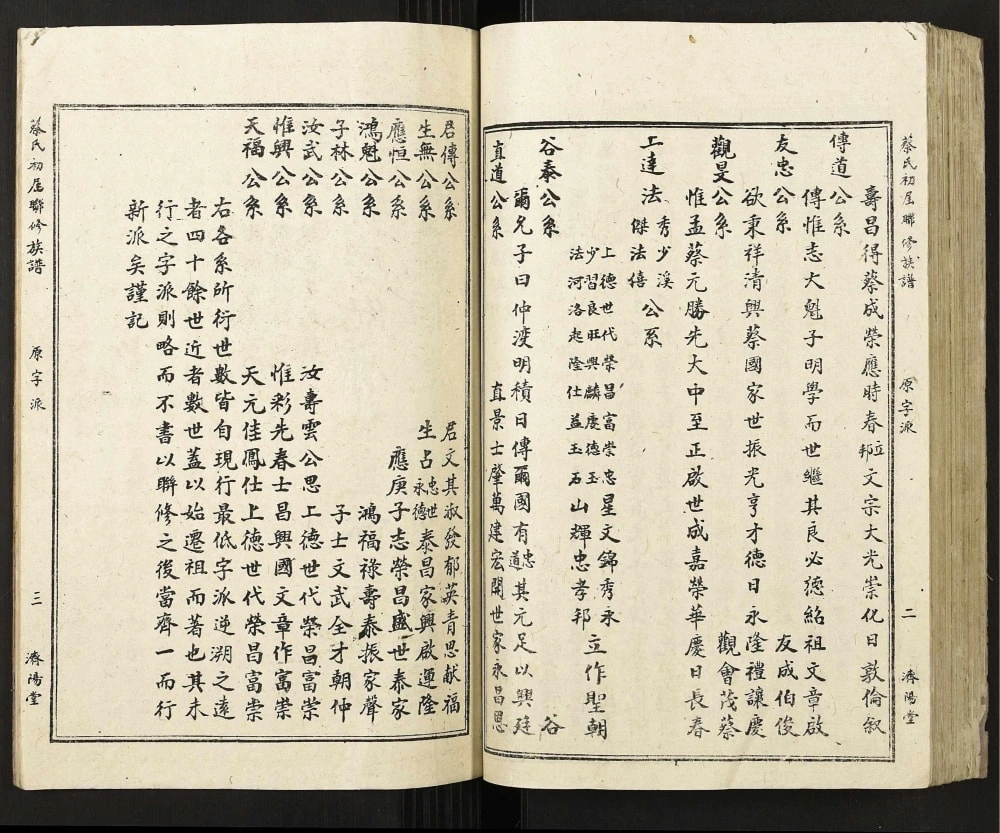 蔡氏初屆聯修族譜 原字派 二 濟陽堂
壽昌得蔡成榮應時春立邦文宗大光崇化日敦倫敘
傳道公系
傳惟志大魁子明學而世繼其良必德紹祖文章啟
友忠公系 友成伯俊
欲秉祥清興蔡國家世振光亨才德日永隆禮讓慶
觀旻公系 觀會茂蔡
惟孟蔡元勝先大中至正啟世成嘉榮華慶日長春
上達法秀少溪傑法禧公系
上德世代榮昌富崇忠星文錦秀永
少習良旺興麟慶德玉
法河洛起隆仕益玉石山輝忠孝邦立作聖朝
谷泰公系 谷
爾允子曰仲渡明積日傳爾國有忠道其元足以興廷
直道公系 直景士肇萬建宏開世家永昌思
君傳公系 君文其淑發郁英青思献福
生無公系 生占忠世永德泰昌家興啟運隆
應恒公系 應庚子志榮昌盛世泰家
鴻魁公系 鴻福祿壽泰振家聲
子林公系 子士文武全才朝仲
汝武公系 汝壽雲公思工德世代榮昌富崇
惟興公系 惟彩先春士昌興國文章作富崇
天福公系 天元佳鳳仕上德世代榮昌富崇
右各系所衍世數皆自現行最低字派逆溯之遠
者四十餘世近者數世蓋以始遷祖而著也其未
行之字派則略而不書以聯修之後當齊一而行
新派矣謹記
蔡氏初屆聯修族譜 原字派 三 濟陽堂